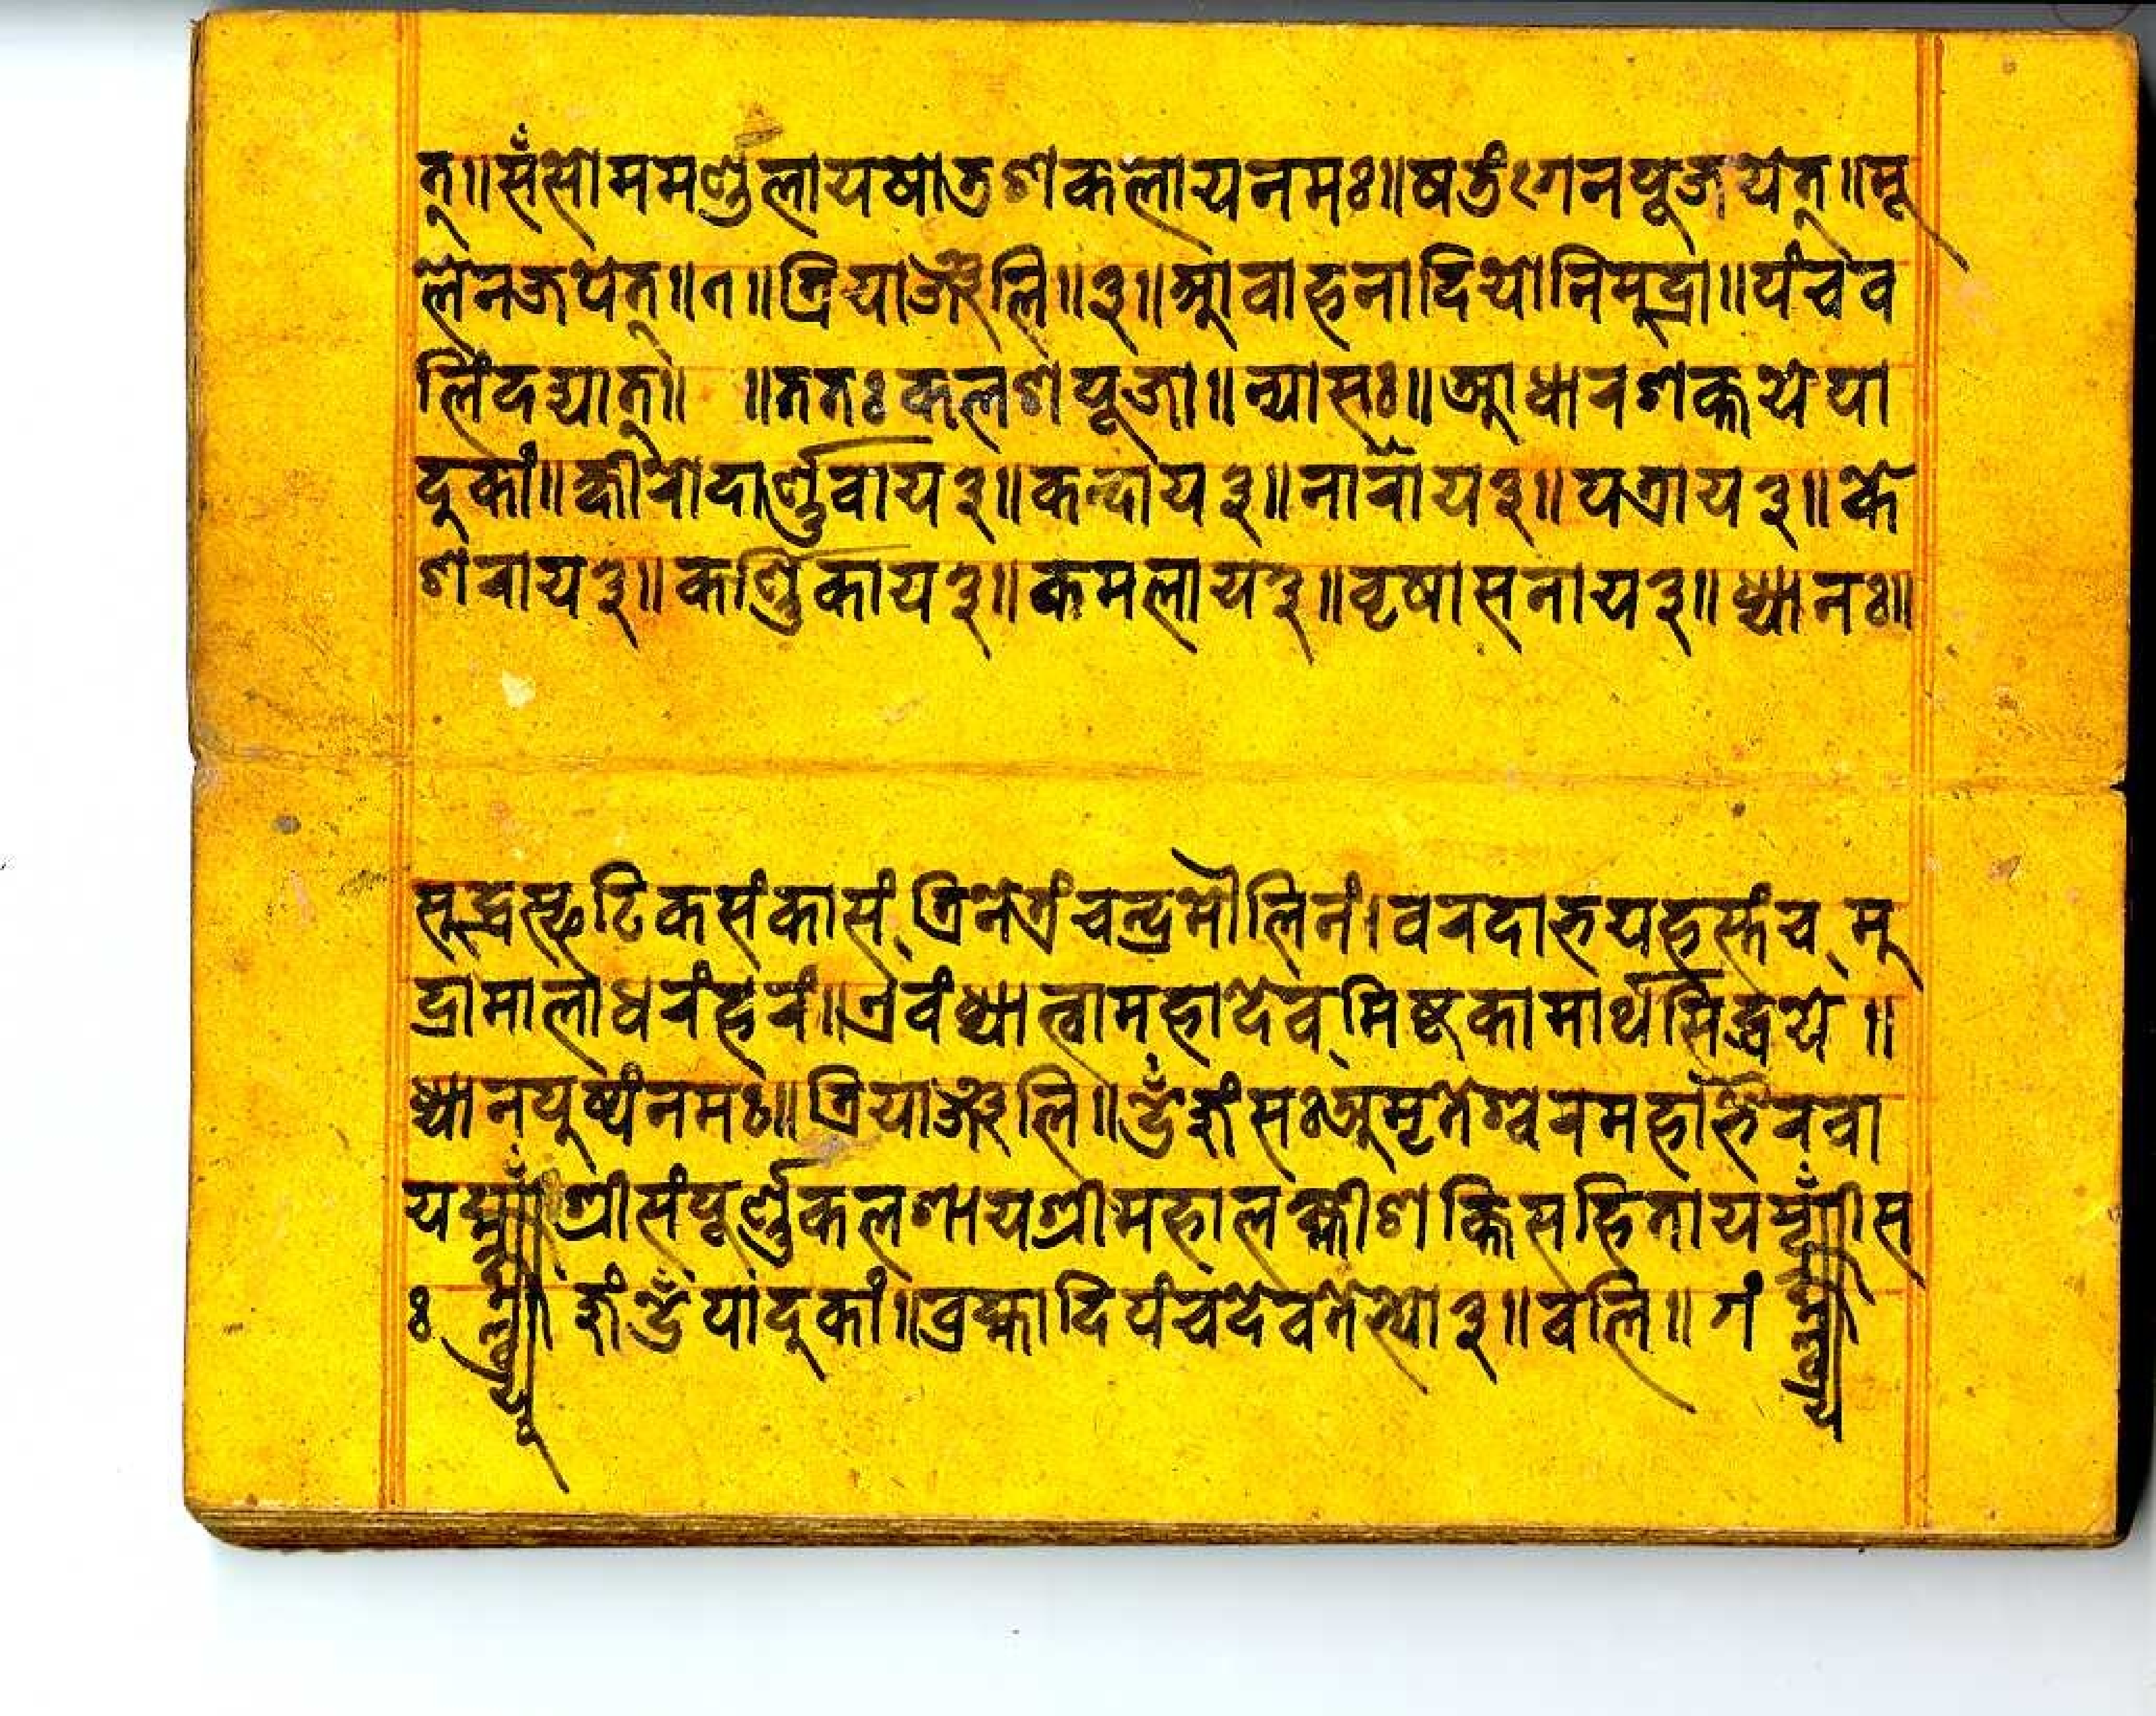 त्॥सँसोममण्डलायषोडशकलायनमः॥षडंगेनपूजयेत्॥मू
लेनजपेत्॥१॥त्रियाञ्जलि॥३॥आवाहनादियोनिमुद्रा॥पंचव
लिंदद्यात्॥ ॥ततःकलशपूजा॥न्यासः॥आधारशक्तयेपा
दुकां॥क्षीरोदार्ण्णवाय३॥कन्दाय३॥नाराय३॥पत्राय३॥के
शराय३॥कर्ण्णिकाय३॥कमलाय३॥वृषासनाय३॥ध्यानः॥
सूद्धस्फटिकसंकासं त्रिनेत्रंचन्द्रमौलिनं।वरदाभयहस्तंच मु
द्रामालाधरंहरं॥एवंध्यात्वामहादेव मिष्टकामार्थसिद्धये॥
ध्यानपुष्पंनमः॥त्रियाञ्जलि॥ॐ जुंसःअमृतेश्वरमहाभैरवा
य श्रीसंपूर्ण्णकलशायश्रीमहालक्ष्मीशक्तिसहिताय स
ः जुंॐ पादुकां॥ब्रह्मादिपंचदेवतेभ्यो३॥वलि॥गं